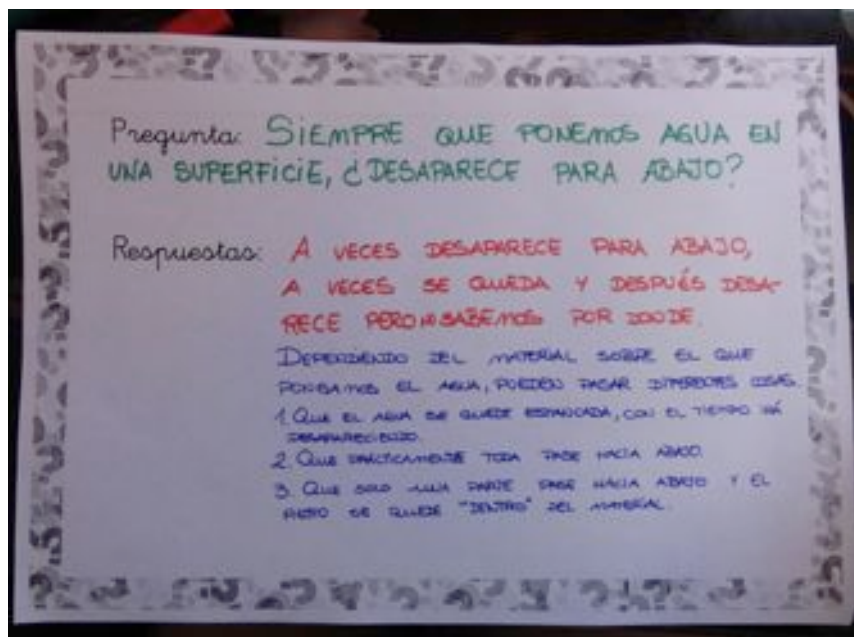 Pregunta: SIEMPRE QUE PONEMOS AGUA EN
UNA SUPERFICIE, ¿DESAPARECE PARA ABAJO?
Respuestas: A VECES DESAPARECE PARA ABAJO,
A VECES SE QUEDA Y DESPUÉS DESA-
RECE PERO NO SABEMOS POR DONDE.
DEPENDIENDO DEL MATERIAL SOBRE EL QUE
PONGAMOS EL AGUA, PUEDEN PASAR DIFERENTES COSAS.
1. QUE EL AGUA SE QUEDE ESTANCADA, CON EL TIEMPO VÁ
DESAPARECIENDO.
2. QUE PRÁCTICAMENTE TODA PASE HACIA ABAJO.
3. QUE SOLO UNA PARTE PASE HACIA ABAJO Y EL
RESTO SE QUEDE "DENTRO" DEL MATERIAL.